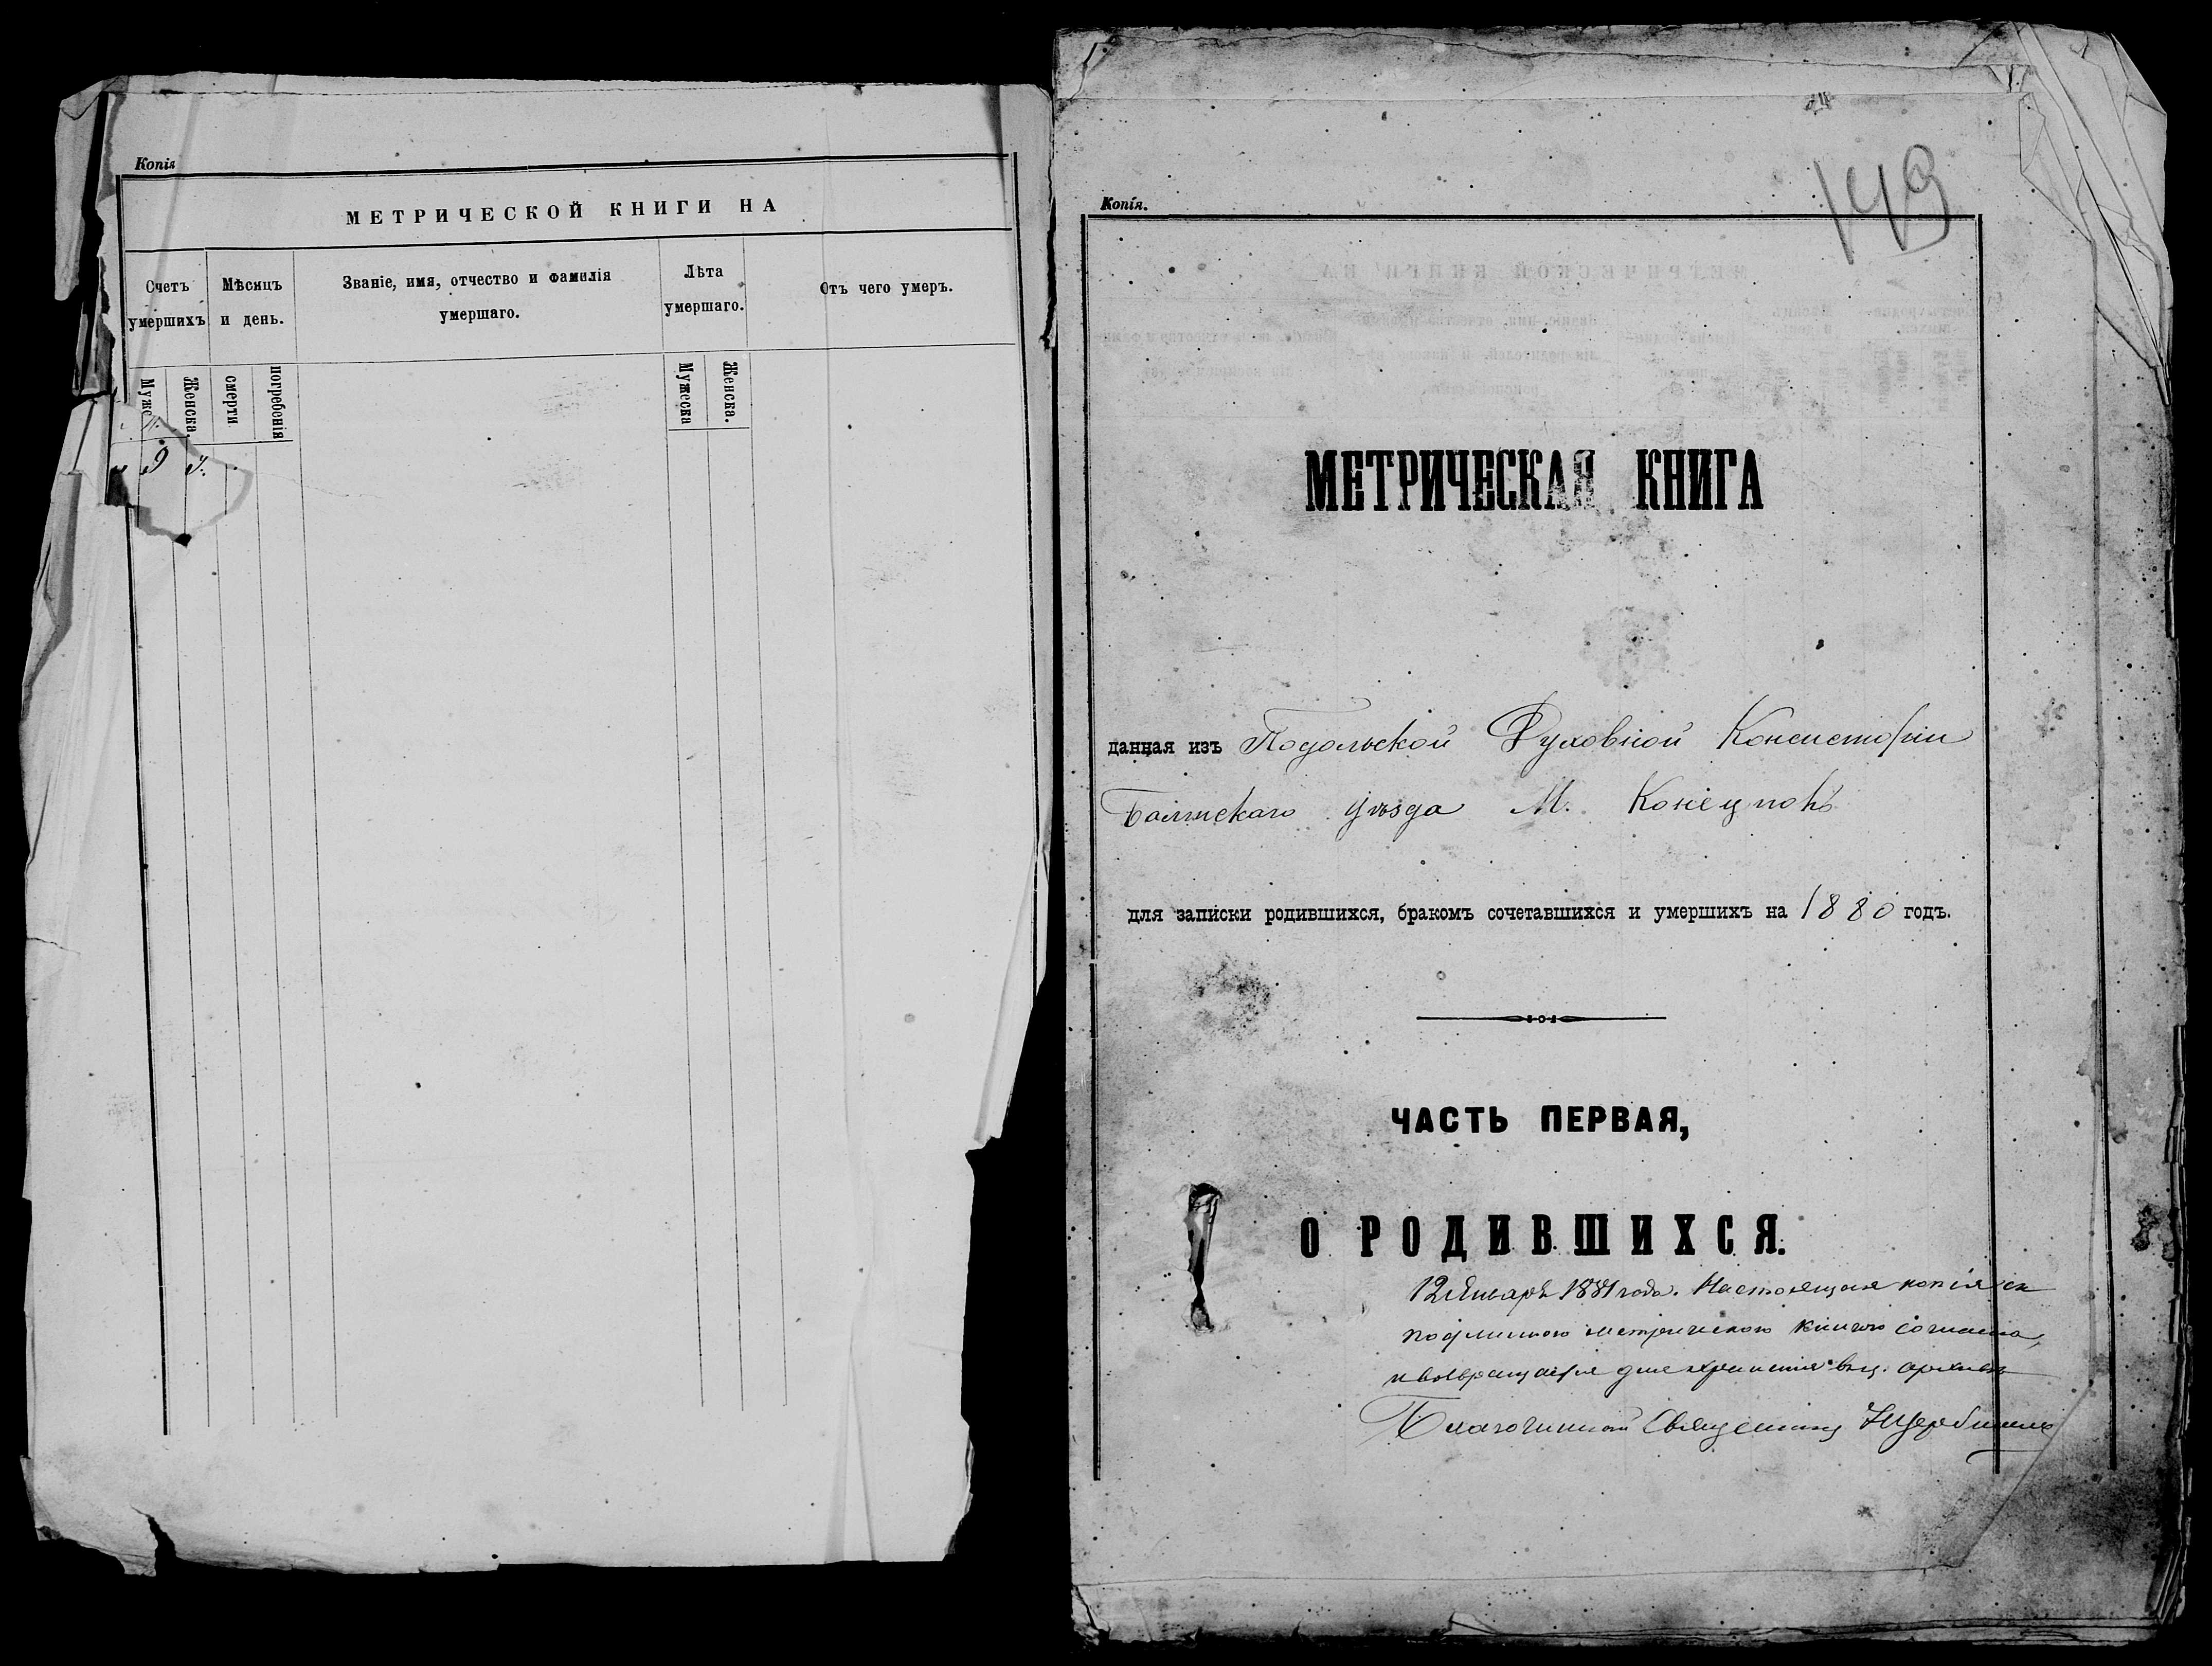 Копія
МЕТРИЧЕСКОЙ КНИГИ НА
Счетъ умершихъ
Мѣсяцъ и день.
Званіе, имя, отчество и фамилія умершаго.
Лѣта умершаго.
Отъ чего умеръ.
Муже
Женска.
смерти
погребенія
Мужеска
Женска.
Копія.
149
МЕТРИЧЕСКАЯ КНИГА
данная изъ Подольской Духовной Консисторіи
Балтскаго уѣзда М. Конецполь
для записки родившихся, бракомъ сочетавшихся и умершихъ на 1880 годъ.
ЧАСТЬ ПЕРВАЯ,
О РОДИВШИХСЯ.
12 Января 1881 года. Настоящая копія съ
подлинною метрическою книгою согласна,
и возвращается для храненія въ ц. архивѣ
Благочинный Священникъ